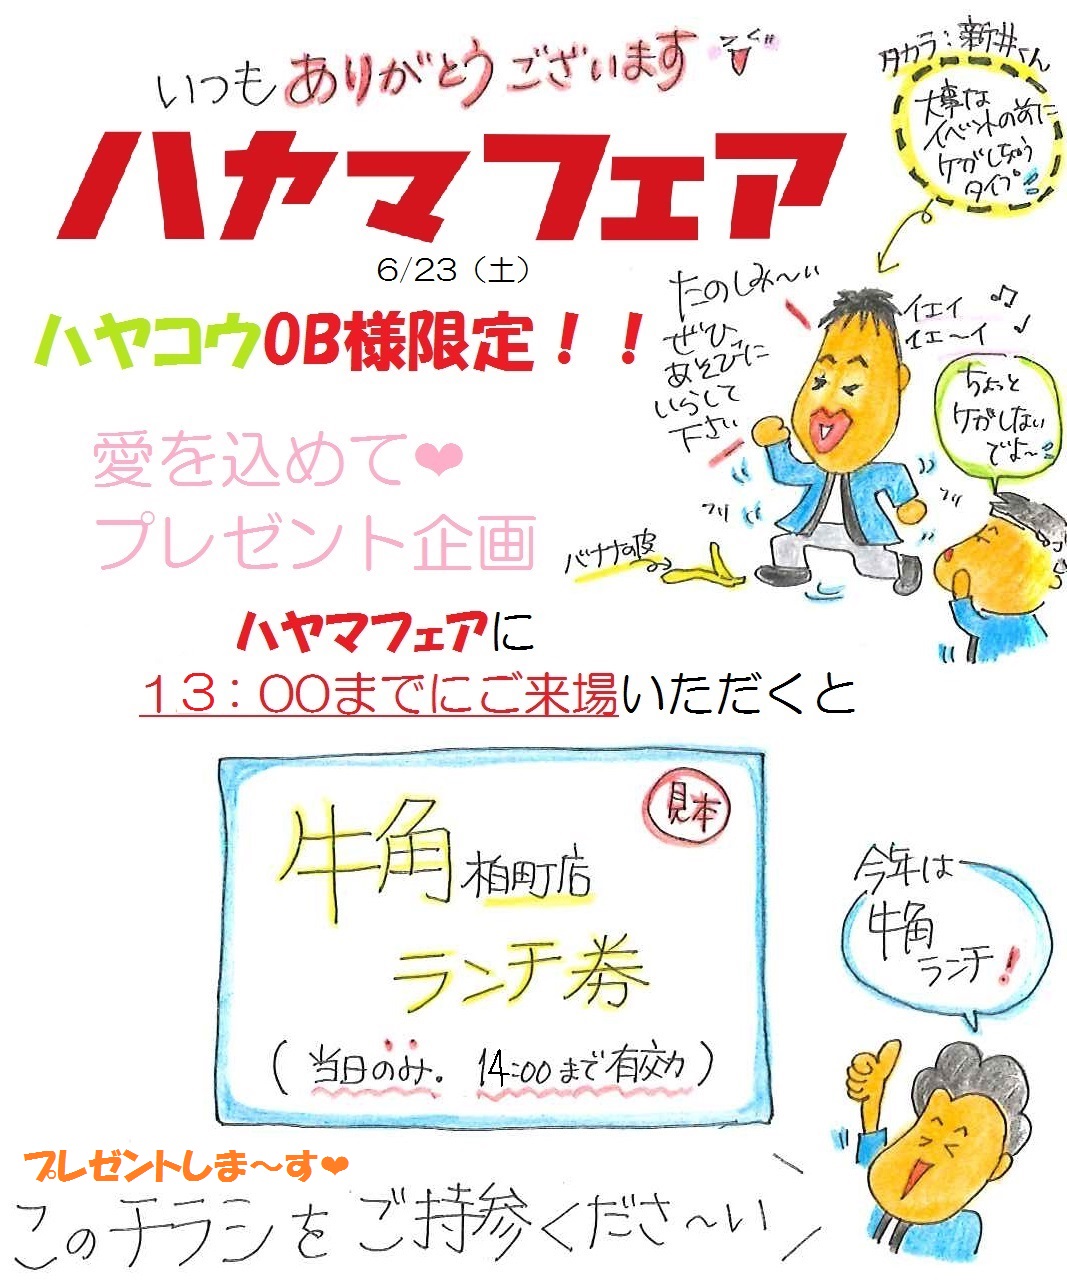 いつもありがとうございます
ハヤマフェア
6/23（土）
ハヤコウOB様限定！！
タカラ：新井くん
大事な
イベントの前に
ケガしちゃう
タイプ
たのしみ～い
ぜひ、
あそびに
いらして
下さい
イエイ♫
イエ～イ♪
ちょっと
ケガしない
でよ～
愛を込めて❤
プレゼント企画
フリ
フリ
バナナの皮
ハヤマフェアに
１３：００までにご来場いただくと
見本
牛角柏町店
ランチ券
（当日のみ。14:00まで有効）
今年は
牛角
ランチ！
プレゼントしま～す❤
このチラシをご持参くださ～い